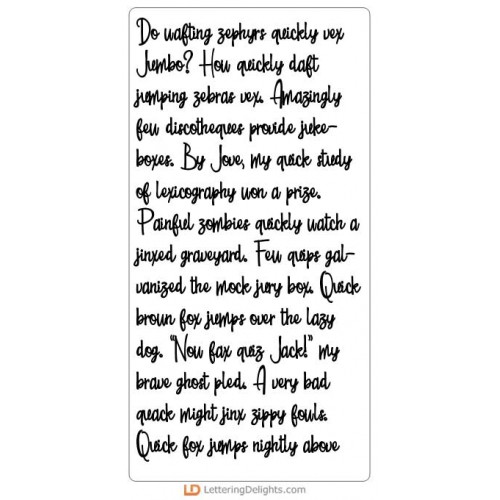 Do wafting zephyrs quickly vex
Jumbo? How quickly daft
jumping zebras vex. Amazingly
few discotheques provide juke-
boxes. By Jove, my quick study
of lexicography won a prize.
Painful zombies quickly watch a
jinxed graveyard. Few quips gal-
vanized the mock jury box. Quick
brown fox jumps over the lazy
dog. "Now fax quiz Jack!" my
brave ghost pled. A very bad
quack might jinx zippy fowls.
Quick fox jumps nightly above
LD LetteringDelights.com